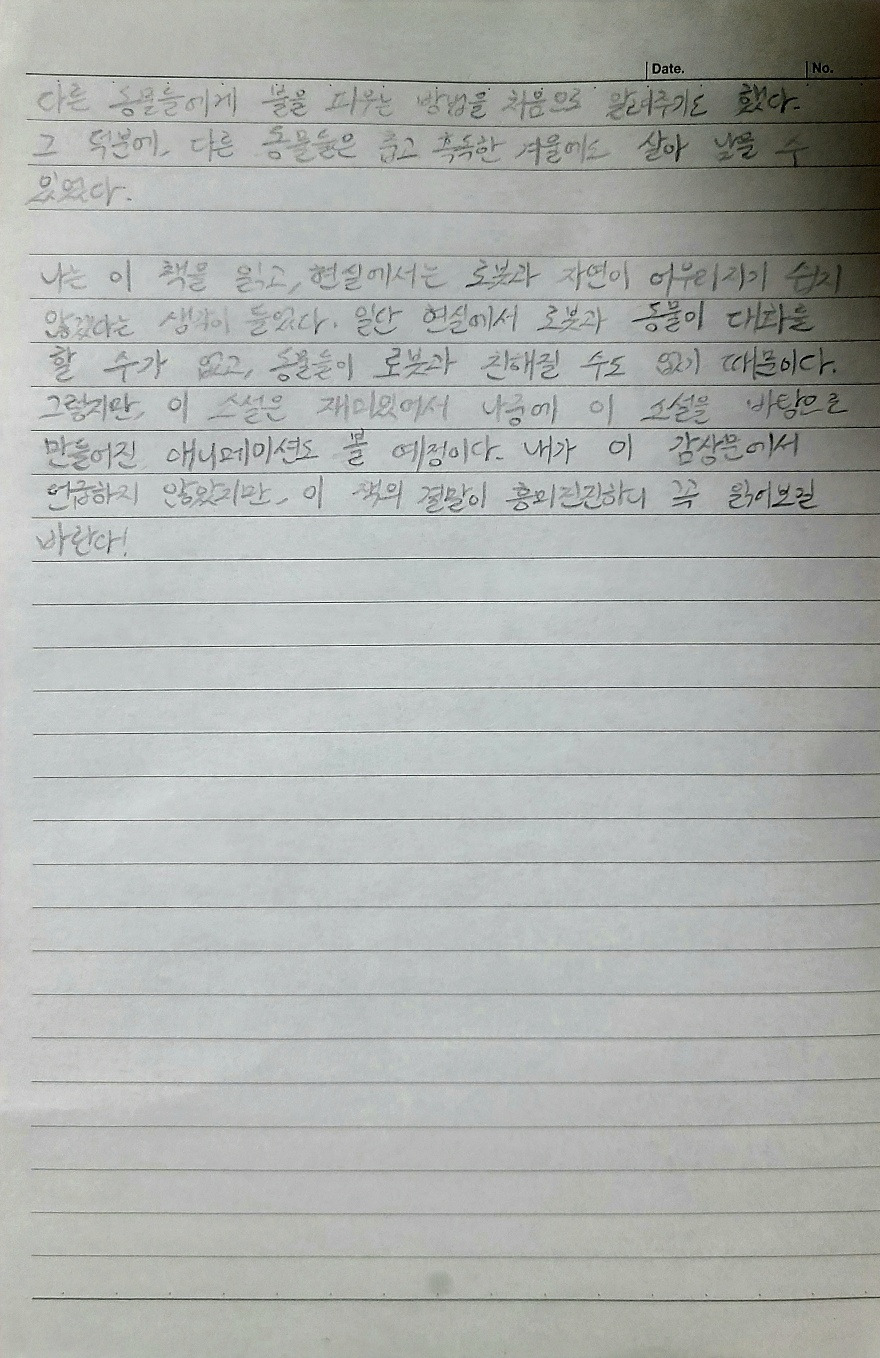 Date. No.
다른 동물들에게 불을 피우는 방법을 처음으로 알려주기도 했다.
그 덕분에, 다른 동물들은 춥고 혹독한 겨울에도 살아 남을 수
있었다.
나는 이 책을 읽고, 현실에서는 로봇과 자연이 어우러지기 쉽지
않겠다는 생각이 들었다. 일단 현실에서 로봇과 동물이 대화를
할 수가 없고, 동물들이 로봇과 친해질 수도 없기 때문이다.
그렇지만, 이 소설은 재미있어서 나중에 이 소설을 바탕으로
만들어진 애니메이션도 볼 예정이다. 내가 이 감상문에서
언급하지 않았지만, 이 책의 결말이 흥미진진하니 꼭 읽어보길
바란다!